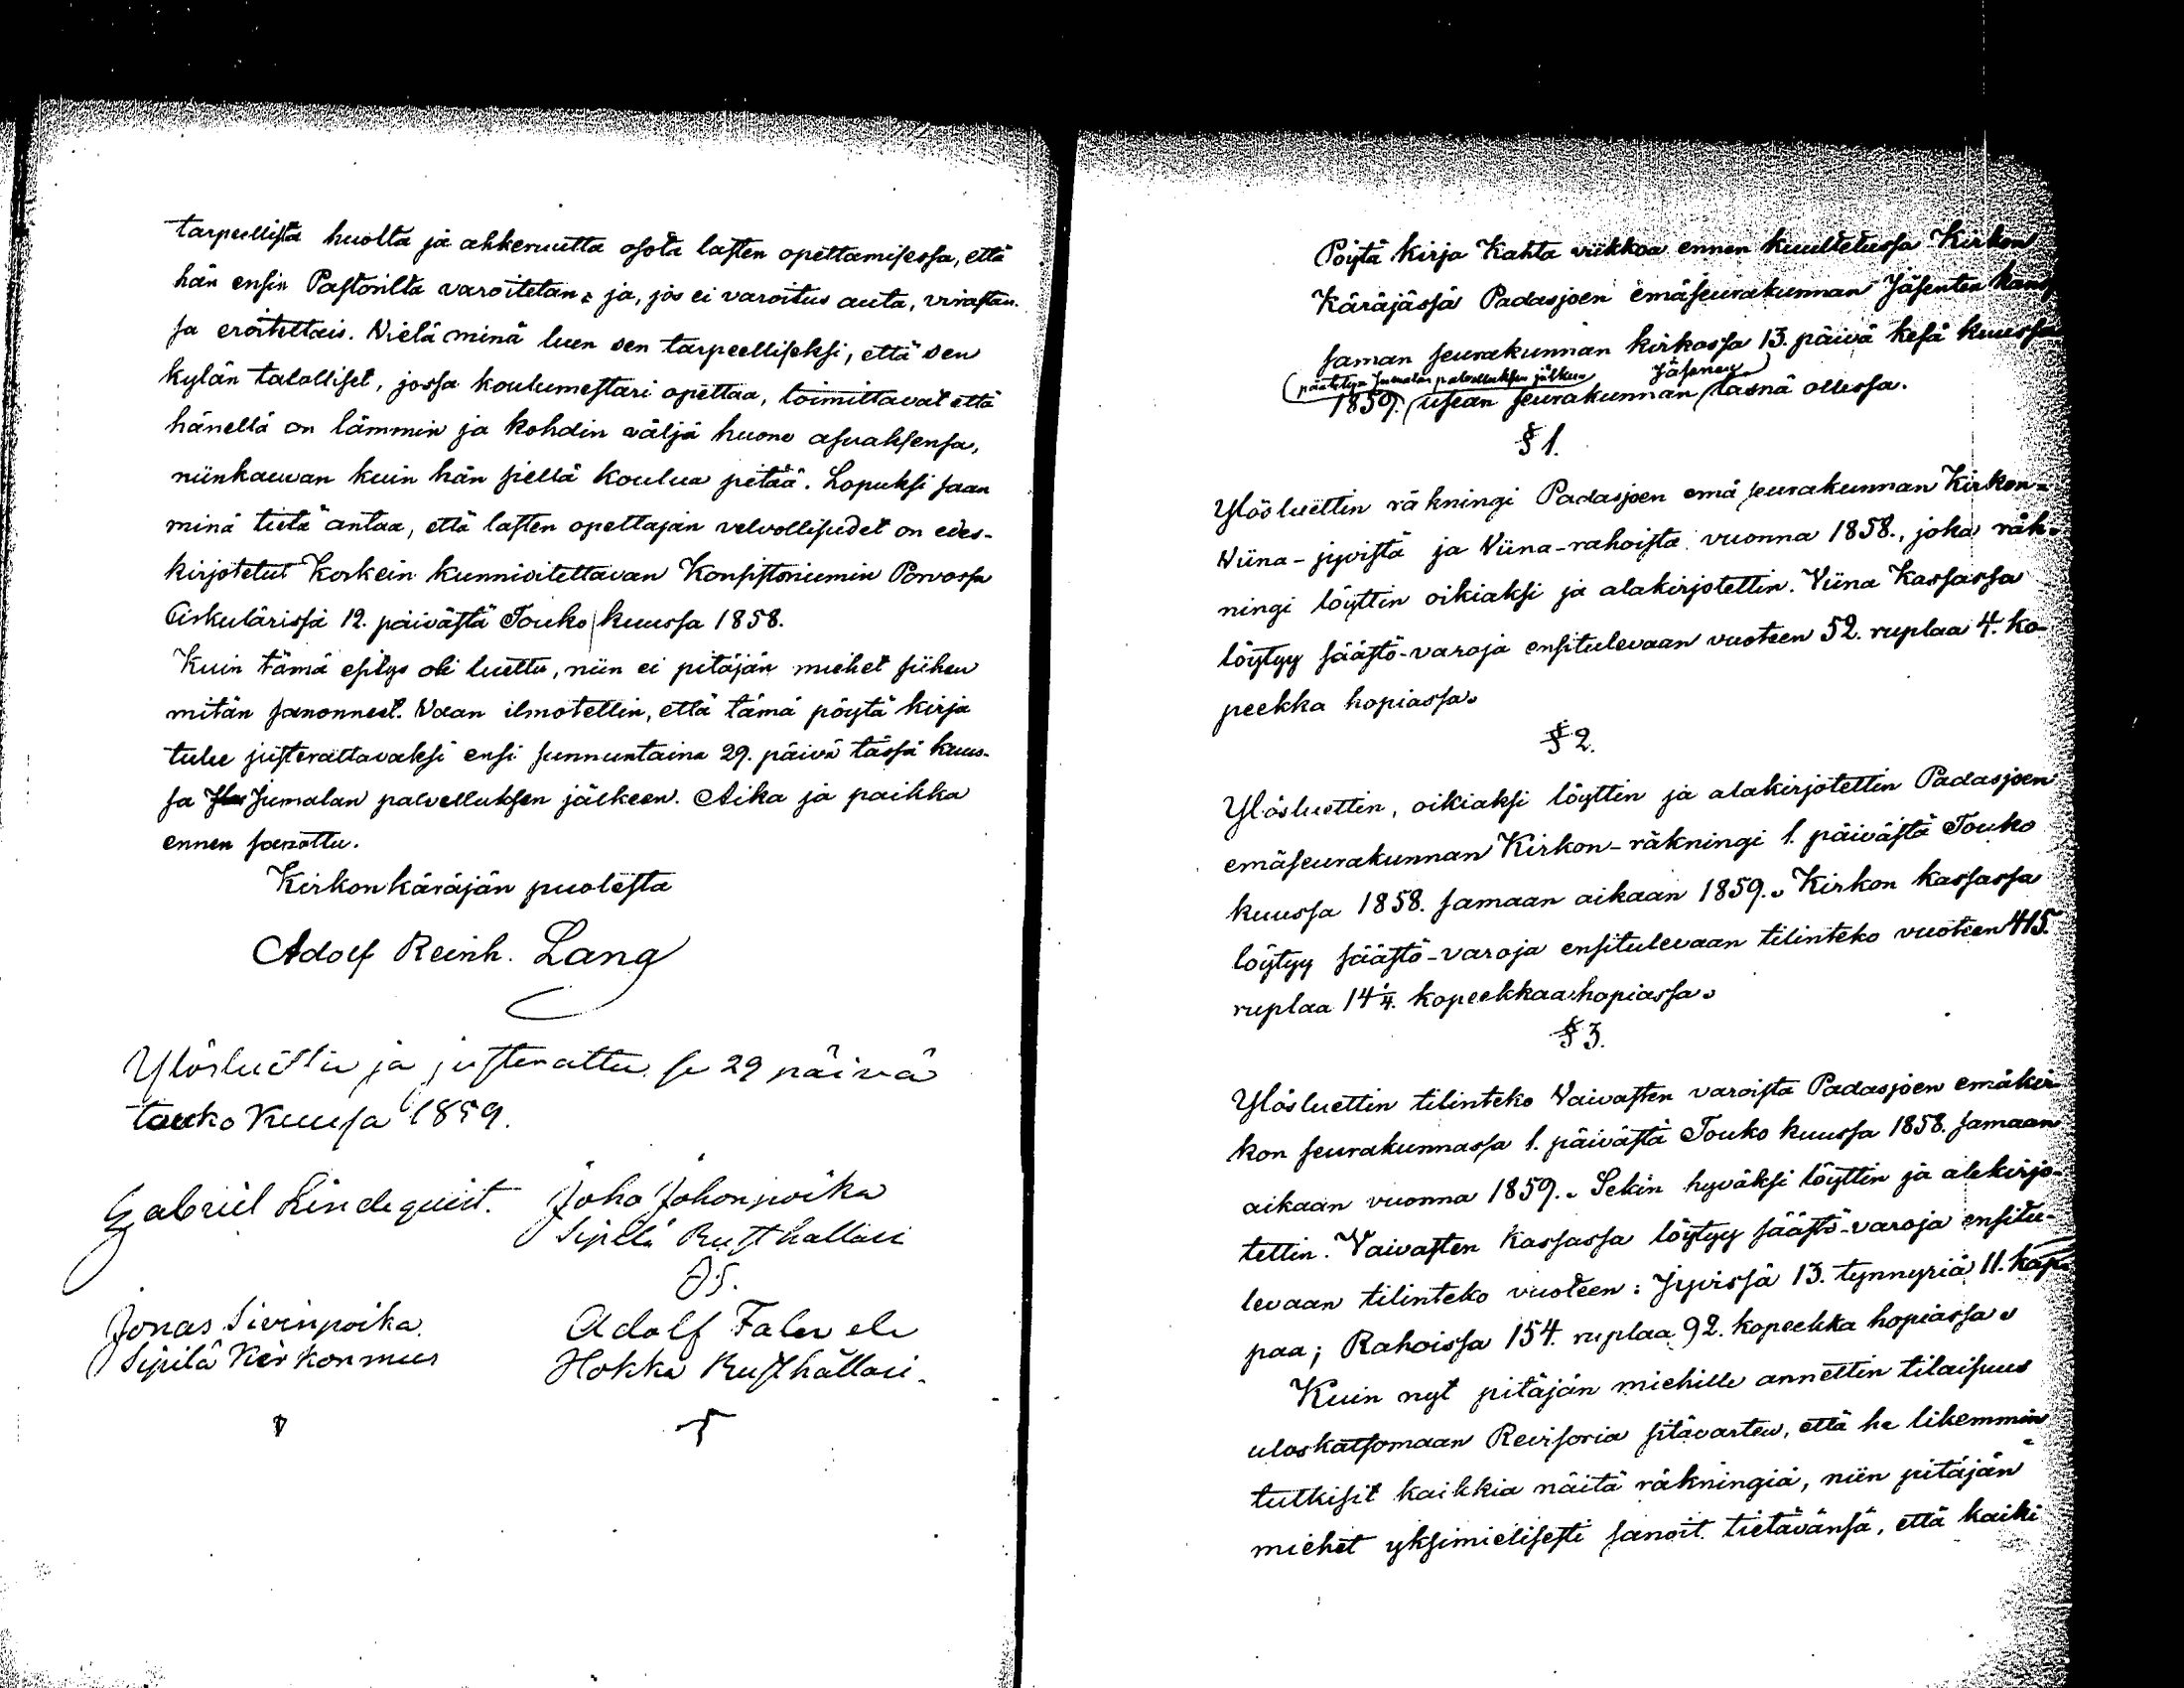 tarpeellista huolta ja ahkeruutta osota lasten opettamisessa, että
hän ensin Pastorilta varoitetan, ja, jos ei varoitus auta, virastan-
sa eroitettais. Vielä minä luen sen tarpeelliseksi, että sen
kylän talolliset, jossa koulumestari opettaa, toimittavat että
hänellä on lämmin ja kohdin väljä huone asuaksensa,
niinkauwan kuin hän siellä koulua pitää. Lopuksi saan
minä tietä antaa, että lasten opettajan velvollisudet on edes-
kirjotetut Korkein kunnioitettavan Konsistoriumin Porvossa
Cirkulärissä 12. päivästä Touko kuussa 1858.
Kuin tämä esitys oli luettu, niin ei pitäjän miehet siihen
mitän sanonneet. Vaan ilmotettin, että tämä pöytä kirja
tulee justerattavaksi ensi sunnuntaina 29. päivä tässä kuus-
sa Jumalan palvelluksen jälkeen. Aika ja paikka
ennen sanottu.
Kirkonkäräjän puolesta
Adolf Reinh. Lang
Ylösluettu ja justerattu se 29 päivä
touko kuusa 1859.
Gabriel Lindequist. Joho Johonpoika
Sipilä Rusthallari
Jonas Sivinpoika Adolf
Sipilä Kirkonmies Hokka Rusthållari.
Pöytä kirja Kahta viikkoa ennen kuulletussa Kirkon
Käräjässä Padasjoen emäseurakunnan Jäsenten kans
saman seurakunnan kirkossa 13. päivä kesä kuussa
päätetyn Jumalan palvelluksen jälken Jäsenen
1859. usean seurakunnan läsnä ollessa.
§ 1.
Ylösluettin räkningi Padasjoen emä seurakunnan Kirkon-
Viina-jyvistä ja Viina-rahoista vuonna 1858., joka räk-
ningi löyttin oikiaksi ja alakirjotettin. Viina Kassassa
löytyy säästö-varoja ensitulevaan vuoteen 52. ruplaa 4. ko-
peekka hopiassa.
§ 2.
Ylösluettin, oikiaksi löyttin ja alakirjotettin Padasjoen
emäseurakunnan Kirkon-räkningi 1. päivästä Touko
kuussa 1858. samaan aikaan 1859. Kirkon kassassa
löytyy säästö-varoja ensitulevaan tilinteko vuoteen 415.
ruplaa 14 1/4. kopeekkaa hopiassa.
§ 3.
Ylösluettin tilinteko Vaivasten varoista Padasjoen emäkir-
kon seurakunnassa 1. päivästä Touko kuussa 1858. samaan
aikaan vuonna 1859. Sekin hyväksi löyttin ja alekirjo-
tettin. Vaivasten Kassassa löytyy säästö-varoja ensitu-
levaan tilinteko vuoteen: Jyvissä 13. tynnyriä 11. kap-
paa; Rahoissa 154. ruplaa 92. kopeekka hopiassa.
Kuin nyt pitäjän miehille annettin tilaisuus
uloskatsomaan Revisoria sitävarten, että he likemmin
tutkisit kaikkia näitä räkningiä, niin pitäjän
miehet yksimielisesti sanoit tietävänsä, että kaiki